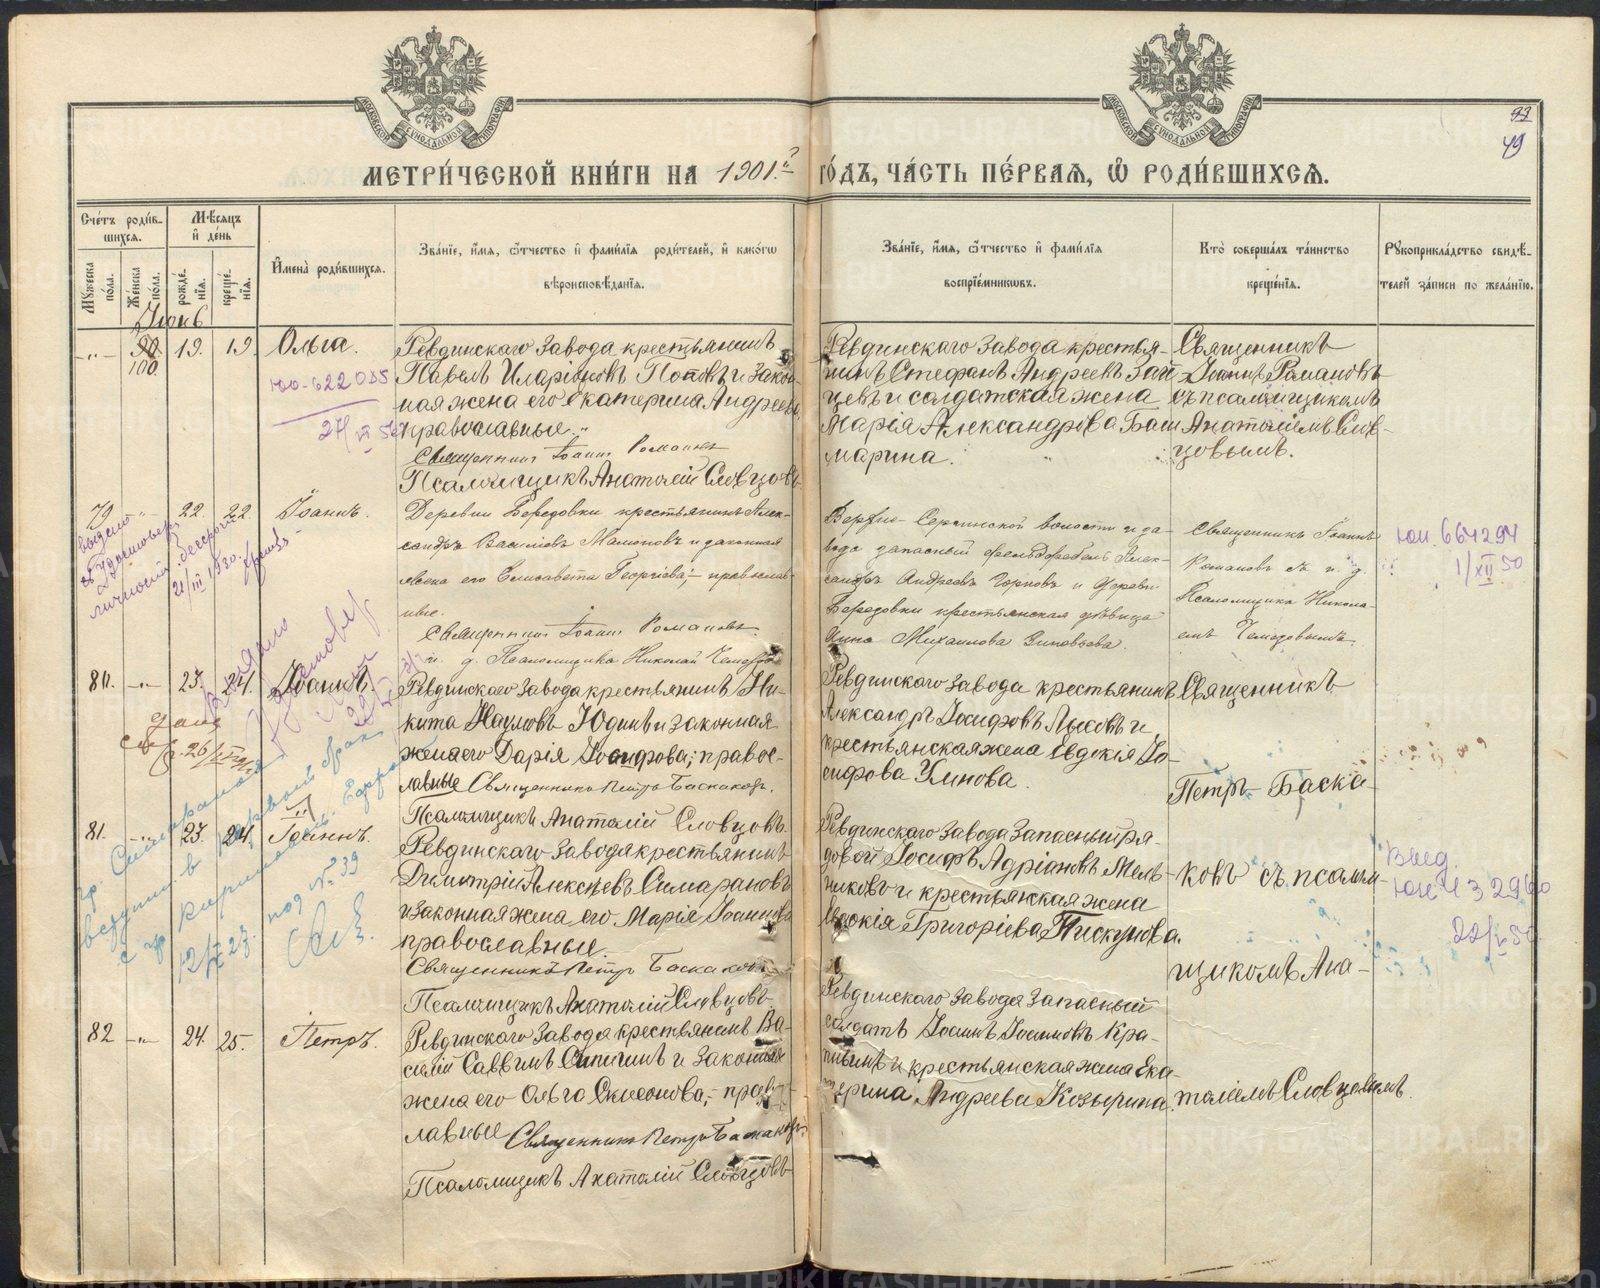 МЕТРИ́ЧЕСКОЙ КНИ́ГИ НА 1901.й ГО́ДЪ, ЧА́СТЬ ПЕ́РВАѦ, Ѡ РОДИ́ВШИХСѦ.
33
49
Сче́тъ роди́в-
шихсѧ.
Мѣ́сѧцъ
и҆ де́нь
Мꙋ́жеска по́ла.
Же́нска по́ла.
рожде́-
нїѧ.
креще́-
нїѧ.
И҆мена̀ роди́вшихсѧ.
Зва́нїе, и҆́мѧ, ѻ҆́тчество и҆ фами́лїѧ роди́телей, и҆ како́гѡ
вѣроисповѣ́данїѧ.
Зва́нїе, и҆́мѧ, ѻ҆́тчество и҆ фами́лїѧ
воспрїе́мникѡвъ.
Кто̀ соверша́лъ та́инство
креще́нїѧ.
Рꙋкоприкла́дство свидѣ́-
телей за́писи по жела́нїю.
Іюнь
-"- 90. 100. 19. 19. Ольга.
Ревдинскаго завода крестьянинъ
Павелъ Иларіоновъ Поповъ и закон-
ная жена его Екатерина Андреева,
православные.
Священникъ Іоаннъ Романовъ
Псаломщикъ Анатолій Словцовъ.
Ревдинскаго завода крестья-
нинъ Стефанъ Андреевъ Зай-
цевъ и солдатская жена
Марія Александрова Баш
марина.
Священникъ
Іоаннъ Романовъ
съ псаломщикомъ
Анатоліемъ Слов-
цовымъ.
Ю-622035
79 " 22. 22. Іоаннъ.
Деревни Бередовки крестьянинъ Алек-
сандръ Василіевъ Мамоновъ и законная
жена его Елисавета Георгіева, - православ-
ные.
Священникъ Іоаннъ Романовъ.
и. д. Псаломщика Николай
Сергинской волости и за-
вода запасный фельдфебель Алек-
сандръ Андреевъ Горновъ и деревни
Бередовки крестьянская дѣвица
Анна Михаилова Зиновьева.
Священникъ Іоаннъ
Романовъ съ и. д.
Псаломщика Никола-
емъ
ЮИ. 664294
1/XII 50
21/III 1930.
80. -"- 23. 24. Іоаннъ.
Ревдинскаго завода крестьянинъ Ни-
кита Наумовъ Юдинъ и законная
жена его Дарія Іосифова; правос-
лавные Священникъ Петръ Баскаковъ.
Псаломщикъ Анатолій Словцовъ.
Ревдинскаго завода крестьянинъ
Александръ Іосифовъ и
крестьянская жена Евдокія Іо-
сифова Уминова.
Священникъ
Петръ Баска-
81. -"- 23. 24. Іоаннъ.
Ревдинскаго завода крестьянинъ
Димитрій Алексѣевъ Симарановъ
и законная жена его Марія Іоаннова
православные.
Священникъ Петръ Баскаковъ
Псаломщикъ Анатолій Словцовъ.
Ревдинскаго завода запасный ря-
довой Іосифъ Адріановъ Мель-
никовъ и крестьянская жена
Евдокія Григоріева Пискунова.
ковъ съ псалом-
щикомъ Ана-
под №39
Выд.
22/V 50
82 -"- 24. 25. Петръ.
Ревдинскаго завода крестьянинъ Ва-
силій Саввинъ Сипягинъ и законная
жена его Ольга Симеонова, - правос-
лавные Священникъ Петръ Баскаковъ
Псаломщикъ Анатолій Словцовъ
Ревдинскаго завода запасный
солдатъ Іоаннъ Іоанновъ Кра-
пивинъ и крестьянская жена Ека-
терина Андреева Козырина.
толіемъ Словцовымъ.